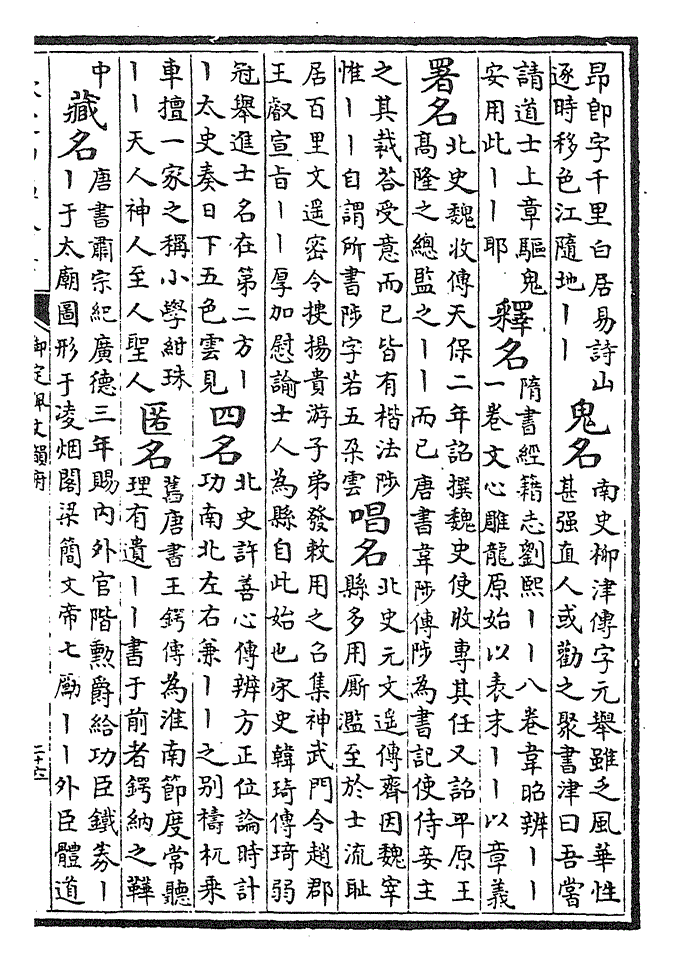 昂卽字千里白居易詩山
逐時移色江隨地丨丨
鬼名
南史柳津傳字元舉雖乏風華性
甚强直人或勸之聚書津曰吾當
請道士上章驅鬼
安用此丨丨耶
釋名
隋書經籍志劉熙丨丨八卷韋昭辨丨丨
一卷文心雕龍原始以表末丨丨以章義
署名
北史魏收傳天保二年詔撰魏史使收專其任又詔平原王
高隆之總監之丨丨而已唐書韋陟傳陟為書記使侍妾主
之其裁荅受意而已皆有楷法陟
惟丨丨自謂所書陟字若五朶雲
唱名
北史元文遥傳齊因魏宰
縣多用厮濫至於士流耻
居百里文遥密令搜揚貴游子弟發敕用之召集神武門令趙郡
王叡宣旨丨丨厚加慰諭士人為縣自此始也宋史韓琦傳琦弱
冠舉進士名在第二方丨
丨太史奏日下五色雲見
四名
北史許善心傳辨方正位論時計
功南北左右兼丨丨之别檮杌乘
車擅一家之稱小學紺珠
丨丨天人神人至人聖人
匿名
舊唐書王鍔傳為淮南節度常聽
理有遺丨丨書于前者鍔納之鞾
中
藏名
唐書肅宗紀廣德三年賜内外官階勲爵給功臣鐵券丨
丨于太廟圖形于凌烟閣梁簡文帝七勵丨丨外臣體道
御定佩文韻府